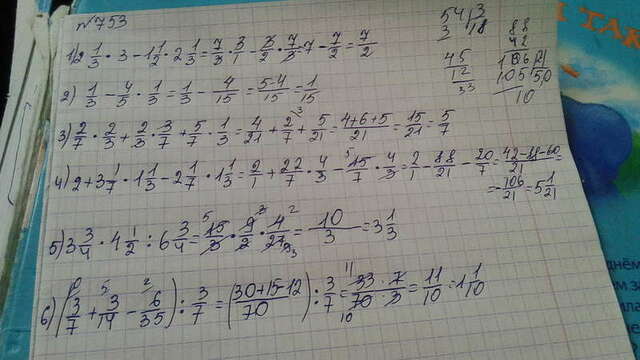 №753
1) 2 1/3 · 3 - 1 1/2 · 2 1/3 = 7/3 · 3/1 - 3/2 · 7/3 = 7 - 7/2 = 7/2
2) 1/3 - 4/5 · 1/3 = 1/3 - 4/15 = 5-4/15 = 1/15
3) 2/7 · 2/3 + 2/3 · 3/7 + 5/7 · 1/3 = 4/21 + 2/7 + 5/21 = 4+6+5/21 = 15/21 = 5/7
4) 2 + 3 1/7 · 1 1/3 - 2 1/7 · 1 1/3 = 2/1 + 22/7 · 4/3 - 15/7 · 4/3 = 2/1 - 88/21 - 20/7 = 42-88-60/21 =
= -106/21 = 5 1/21
5) 3 3/4 · 4 1/2 : 6 3/4 = 15/3 · 9/2 · 4/27 = 10/3 = 3 1/3
6) (3/7 + 3/14 - 6/35) : 3/7 = (30+15-12/70) : 3/7 = 33·7/70·3 = 11/10 = 1 1/10